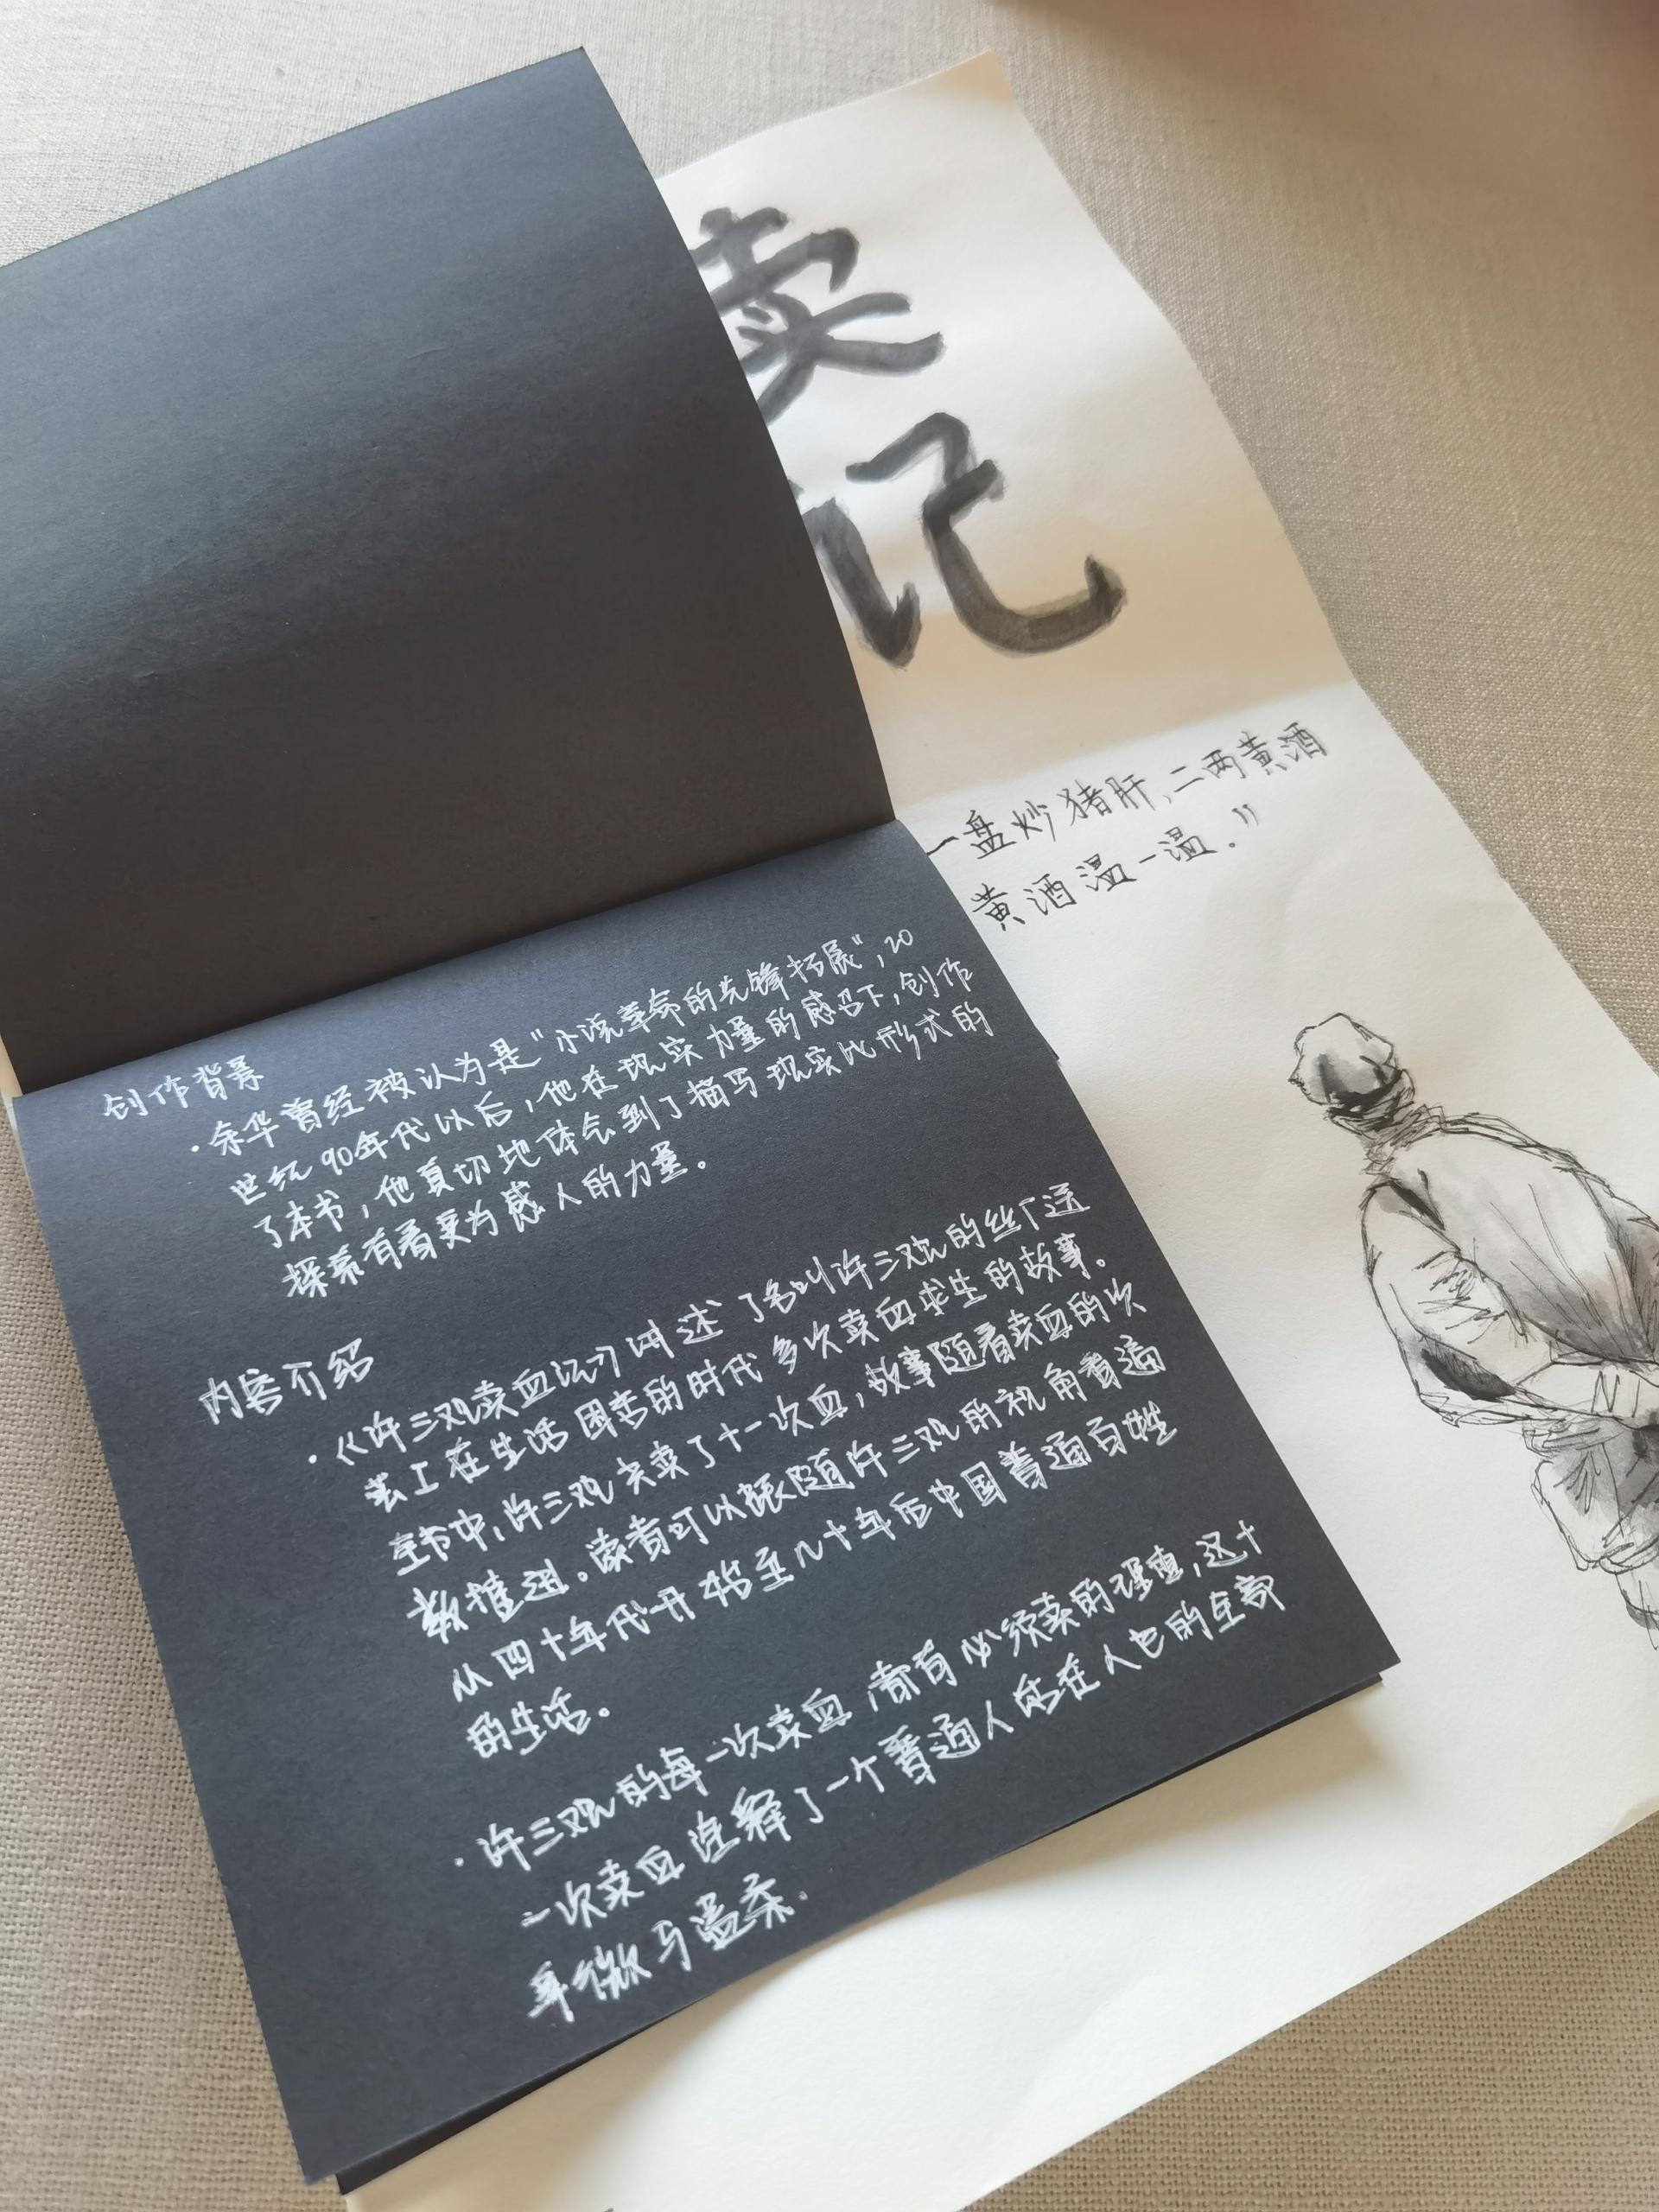 卖
记
一盘炒猪肝,二两黄酒
黄酒温一温."
创作背景
·余华曾经被认为是"小说革命的先锋拓展",20
世纪90年代以后,他在现实力量的感召下,创作
了本书,他真切地体会到了描写现实比形式的
探索有着更为感人的力量。
内容介绍
·《许三观卖血记》讲述了名叫许三观的丝厂送
茧工在生活困苦的时代多次卖血求生的故事。
全书中,许三观共卖了十一次血,故事随着卖血的次
数推进。读者可以跟随许三观的视角看遍
从四十年代开始至几十年后中国普通百姓
的生活。
·许三观的每一次卖血,都有必须卖的理由,这十
一次卖血诠释了一个普通人活在人世的全部
卑微与温柔.